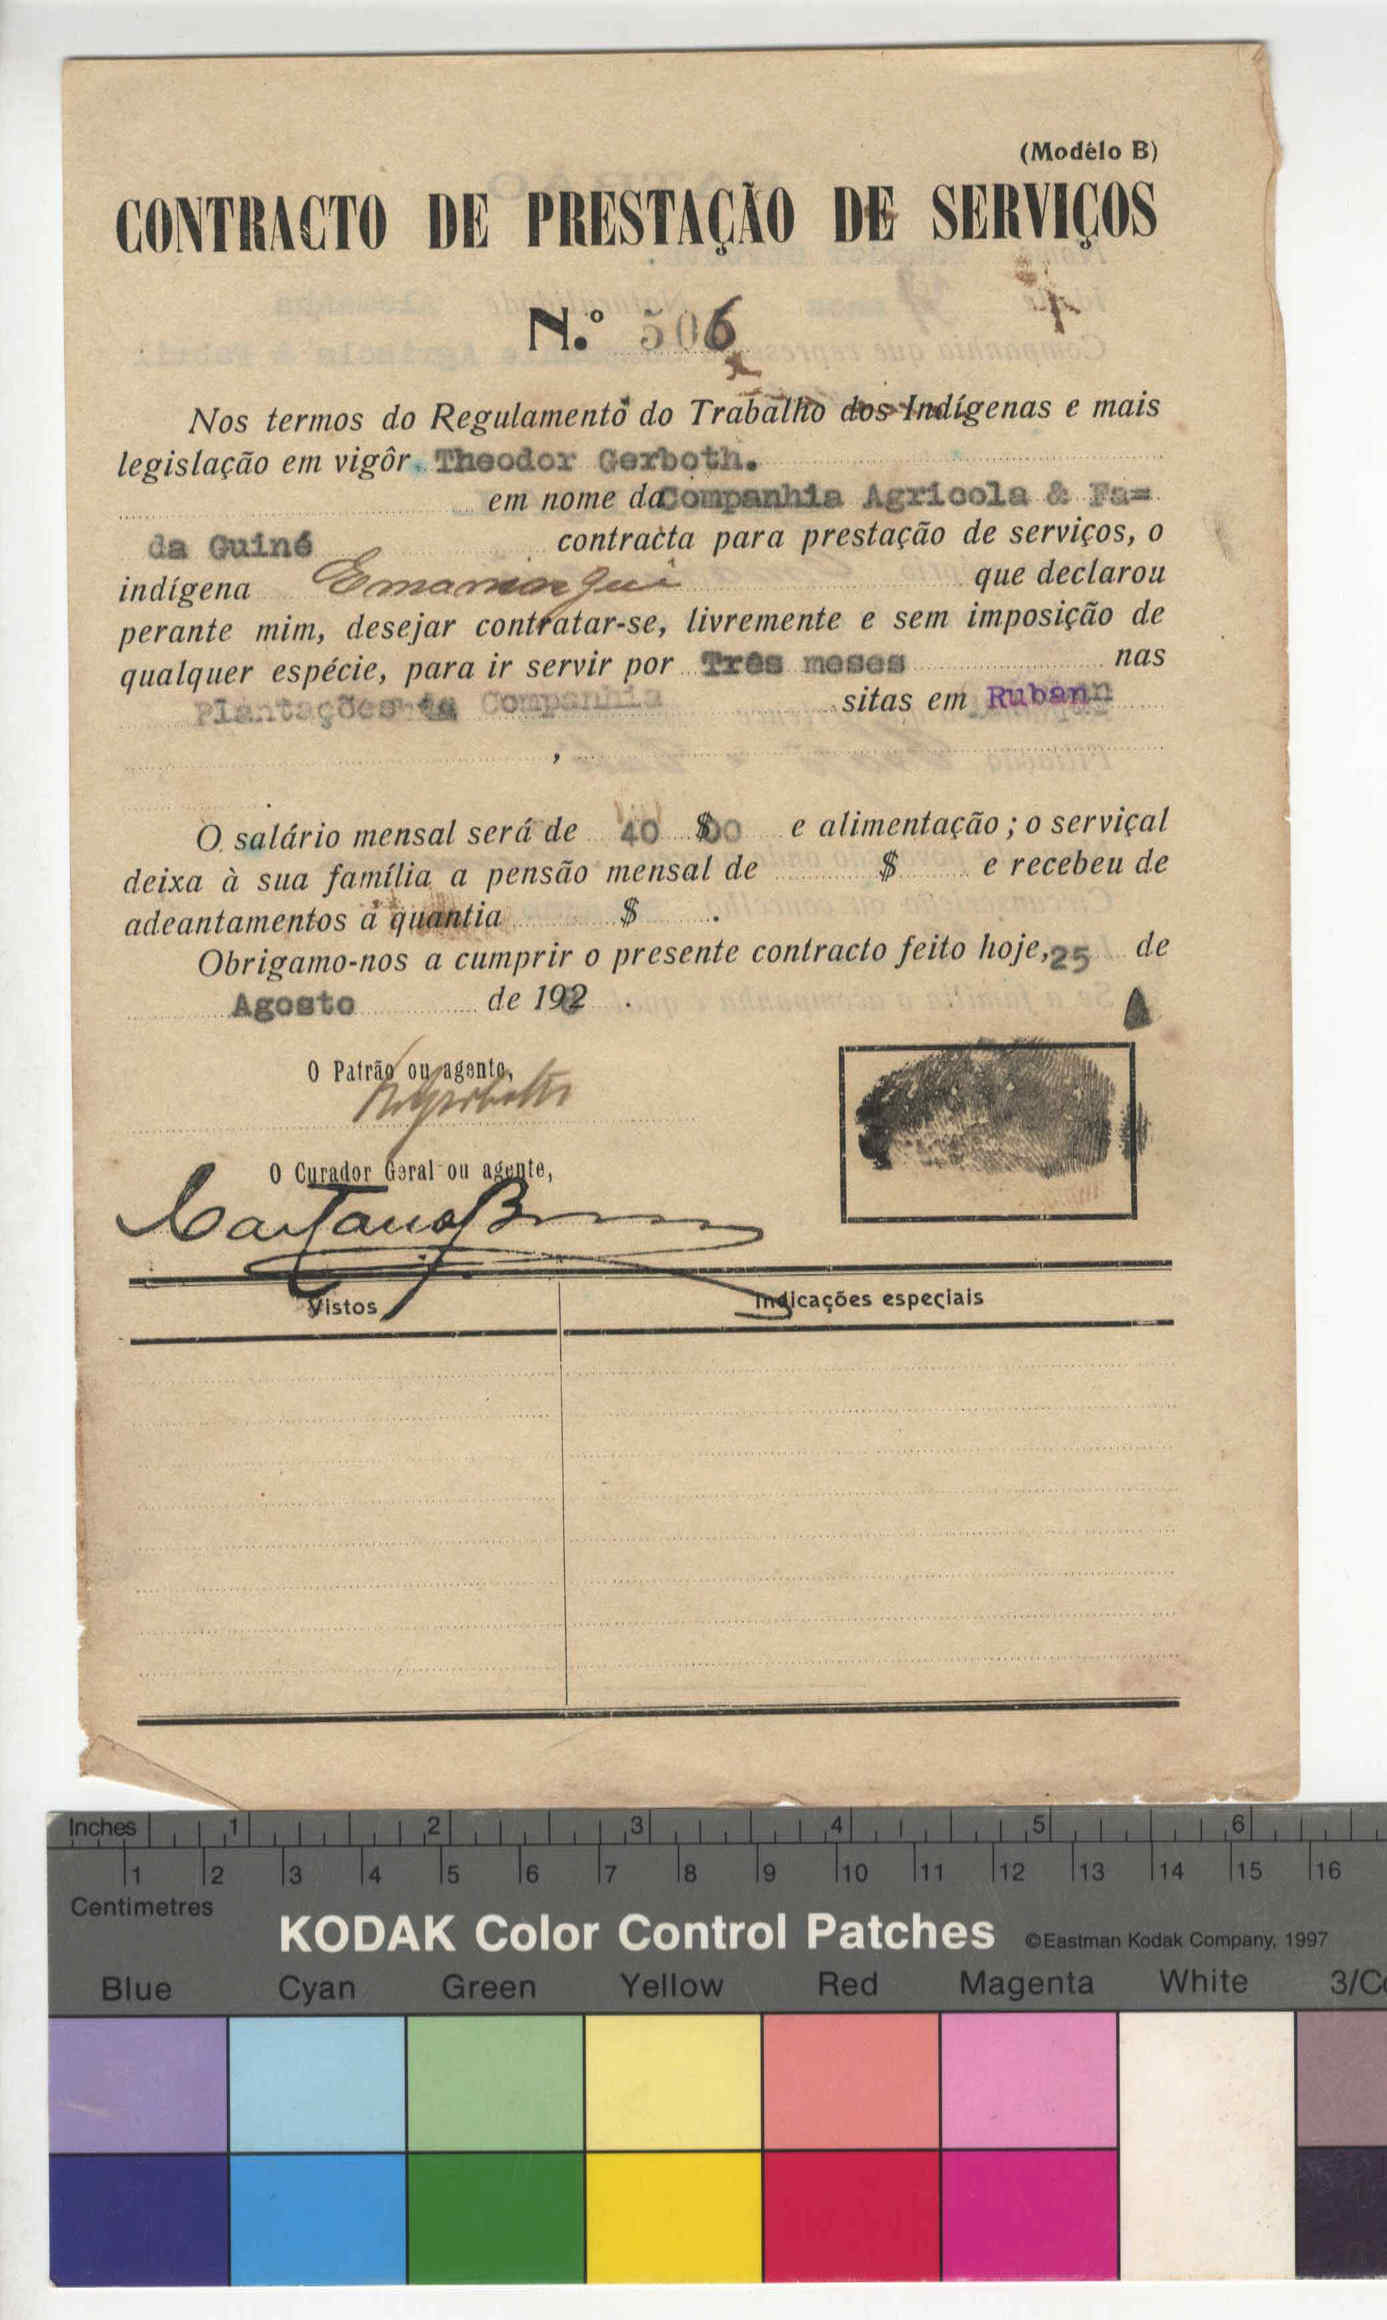 (Modêlo B)
CONTRACTO DE PRESTAÇÃO DE SERVIÇOS
N.º 506
Nos termos do Regulamento do Trabalho dos Indígenas e mais
legislação em vigôr Theodor Gerboth.
em nome da Companhia Agricola & Fa=
da Guiné contracta para prestação de serviços, o
indígena que declarou
perante mim, desejar contratar-se, livremente e sem imposição de
qualquer espécie, para ir servir por Três meses nas
Plantações da Companhia sitas em Rubann
O salário mensal será de 40 $00 e alimentação; o serviçal
deixa à sua família a pensão mensal de $ e recebeu de
adeantamentos a quantia $ .
Obrigamo-nos a cumprir o presente contracto feito hoje, 25 de
Agosto de 192 .
O Patrão ou agente,
O Curador Geral ou agente,
Caetano
Vistos
Indicações especiais
Inches 1 2 3 4 5 6
1 2 3 4 5 6 7 8 9 10 11 12 13 14 15 16
Centimetres
KODAK Color Control Patches ©Eastman Kodak Company, 1997
Blue Cyan Green Yellow Red Magenta White 3/Co